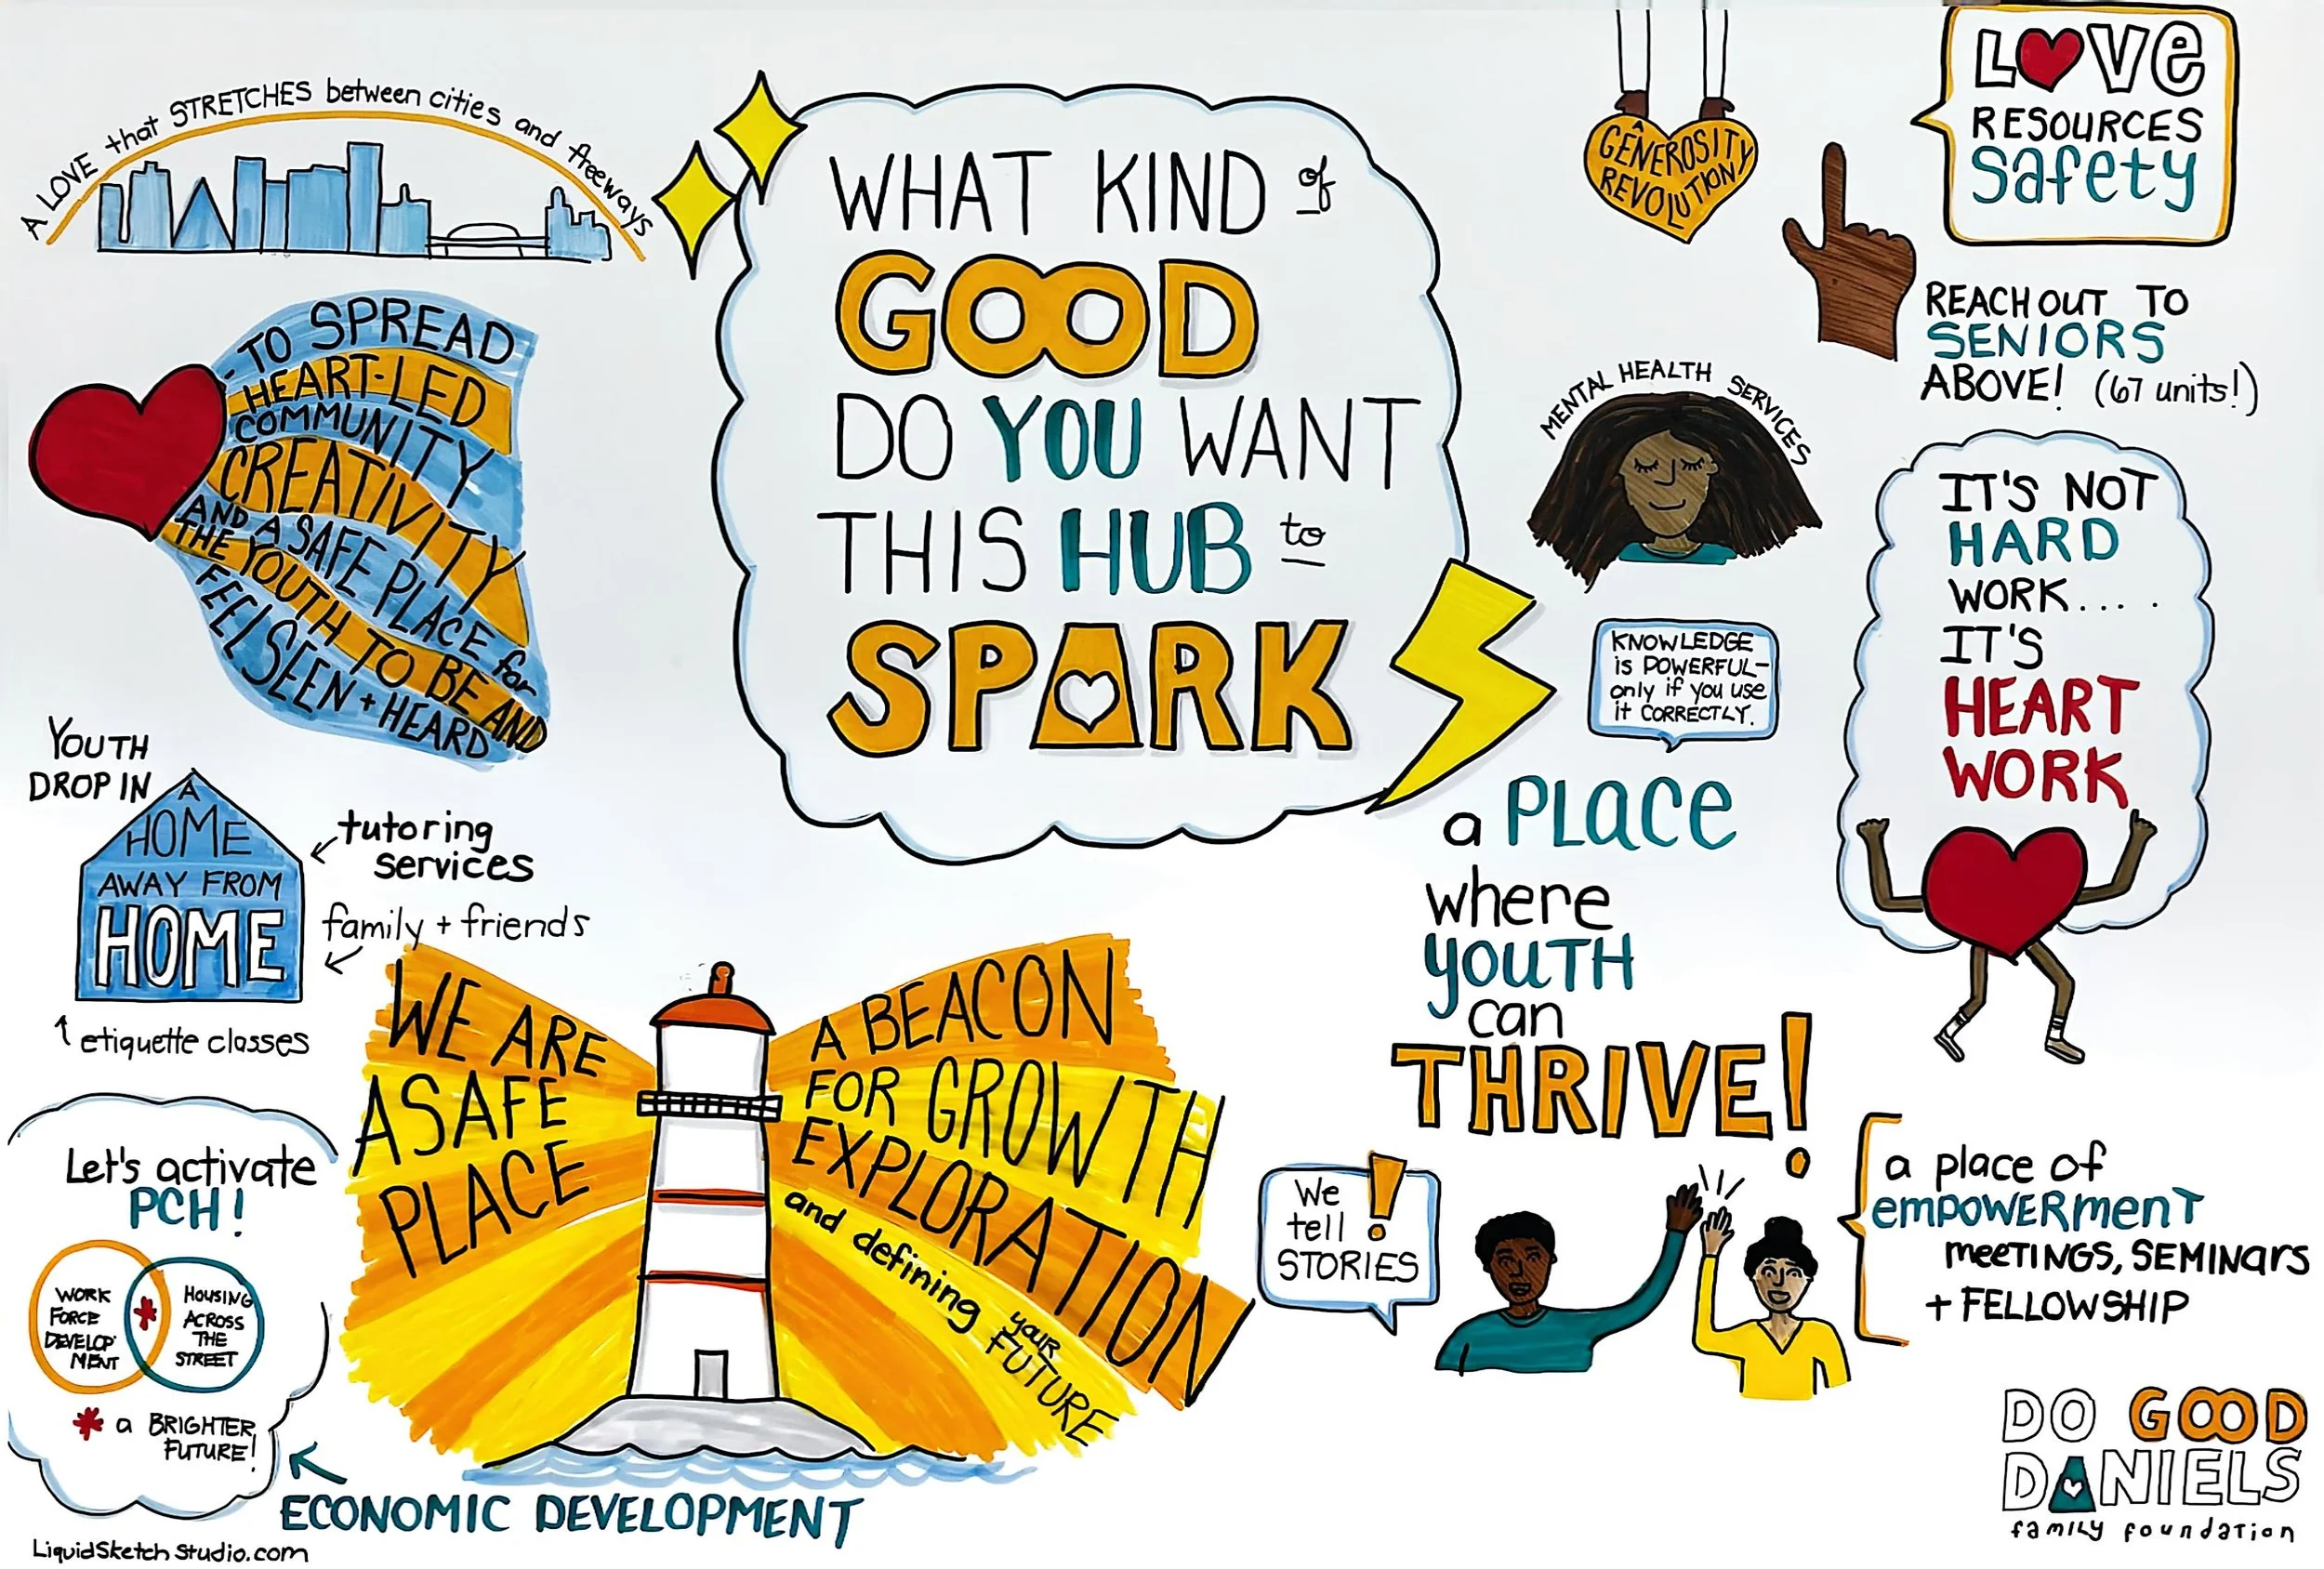 A LOVE that STRETCHES between cities and freeways
WHAT KIND of
GOOD
DO YOU WANT
THIS HUB to
SPARK
A
GENEROSITY
REVOLUTION
LOVE
RESOURCES
Safety
REACH OUT TO
SENIORS
ABOVE! (67 units!)
- TO SPREAD
HEART-LED
COMMUNITY
CREATIVITY
AND A SAFE PLACE for
THE YOUTH TO BE AND
FEEL SEEN + HEARD
MENTAL HEALTH SERVICES
KNOWLEDGE
is POWERFUL-
only if you use
it CORRECTLY.
IT'S NOT
HARD
WORK.... .
IT'S
HEART
WORK
YOUTH
DROP IN
A
HOME
AWAY FROM
HOME
tutoring
services
family + friends
etiquette classes
a PLACE
where
YOUTH
can
THRIVE!
WE ARE
A SAFE
PLACE
A BEACON
FOR GROWTH
EXPLORATION
and defining your
FUTURE
We
tell !
STORIES
a place of
EMPOWERMENT
MEETINGS, SEMINARS
+ FELLOWSHIP
Let's activate
PCH!
WORK
FORCE
DEVELOP-
MENT
*
HOUSING
ACROSS
THE
STREET
* a BRIGHTER
FUTURE!
ECONOMIC DEVELOPMENT
LiquidSketchStudio.com
DO GOOD
DANIELS
family foundation